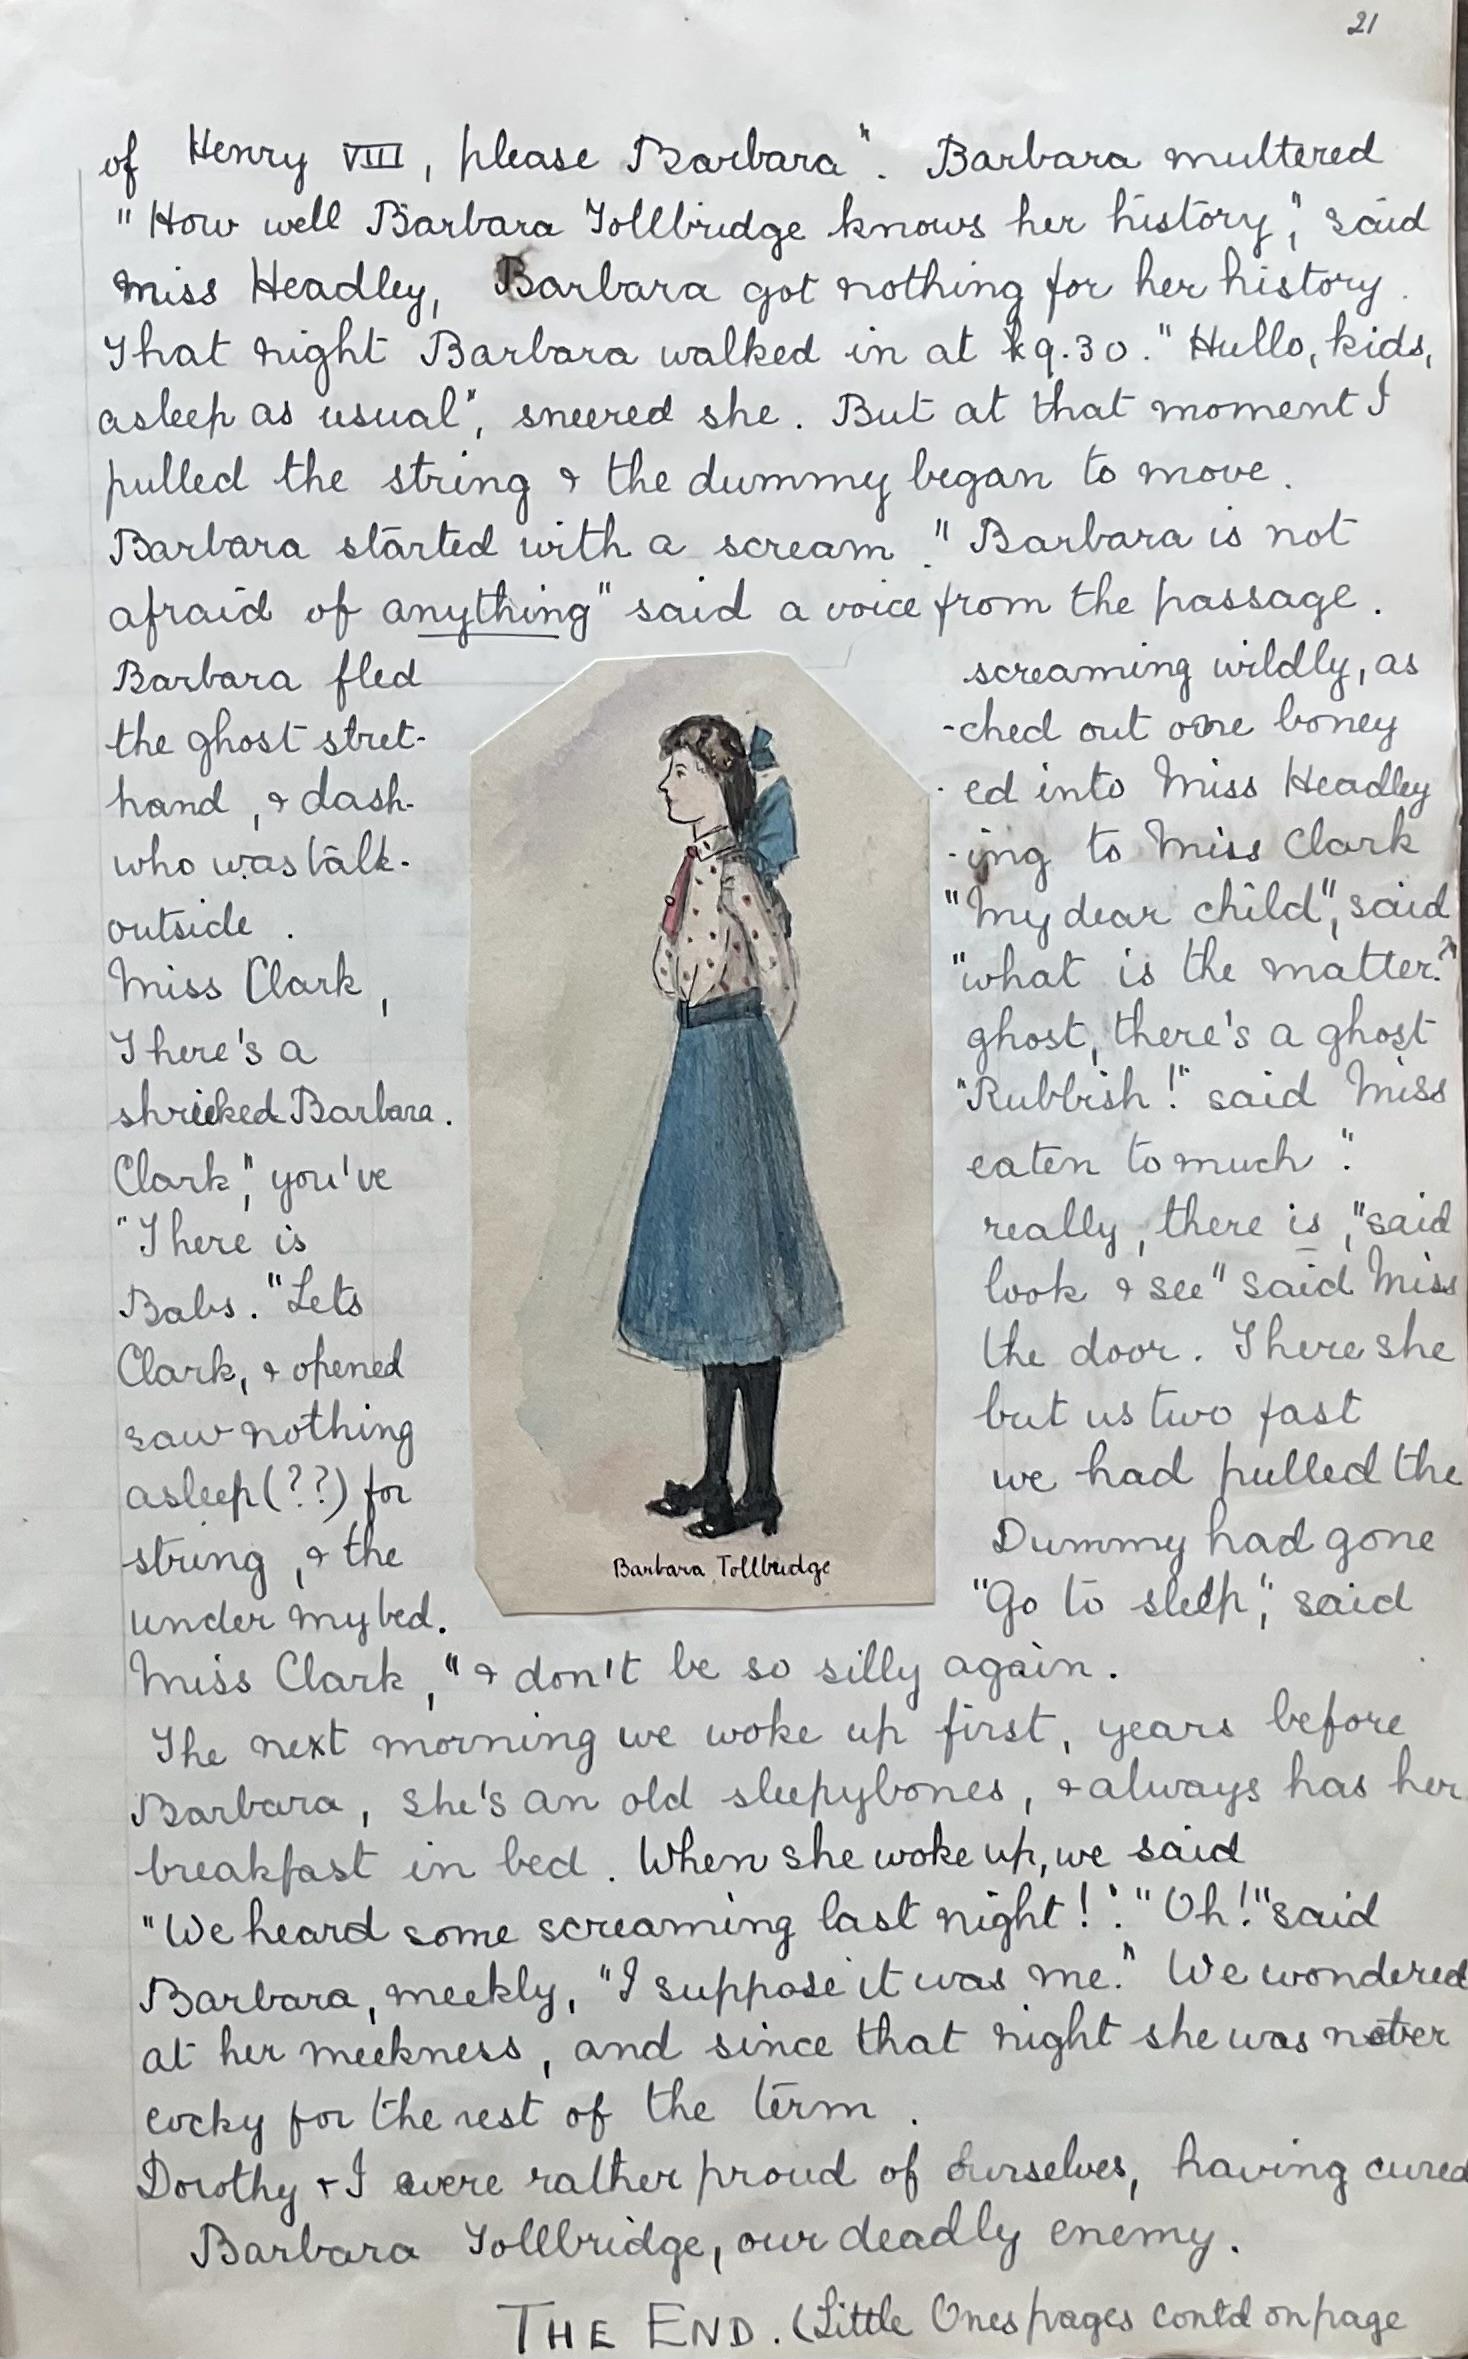 21
of Henry VIII, please Barbara". Barbara muttered
"How well Barbara Tollbridge knows her history," said
Miss Headley, Barbara got nothing for her history.
That night Barbara walked in at 9.30. "Hullo, kids,
asleep as usual", sneered she. But at that moment I
pulled the string & the dummy began to move.
Barbara started with a scream. "Barbara is not
afraid of anything" said a voice from the passage.
Barbara fled screaming wildly, as
the ghost stret- -ched out one boney
hand, & dash- -ed into Miss Headley
who was talk- -ing to Miss Clark
outside. "My dear child", said
Miss Clark, "what is the matter?"
There's a ghost, there's a ghost
shrieked Barbara. "Rubbish!" said Miss
Clark," you've eaten to much".
"There is really, there is," said
Babs. "Lets look & see" said Miss
Clark, & opened the door. There she
saw nothing but us two fast
asleep (??) for we had pulled the
string, & the Dummy had gone
under my bed. "Go to sleep", said
Miss Clark, "& don't be so silly again.
The next morning we woke up first, years before
Barbara, she's an old sleepybones, & always has her
breakfast in bed. When she woke up, we said
"We heard some screaming last night!". "Oh!" said
Barbara, meekly, "I suppose it was me." We wondered
at her meekness, and since that night she was never
cocky for the rest of the term.
Dorothy & I were rather proud of ourselves, having cured
Barbara Tollbridge, our deadly enemy.
THE END. (Little Ones pages contd on page
Barbara Tollbridge